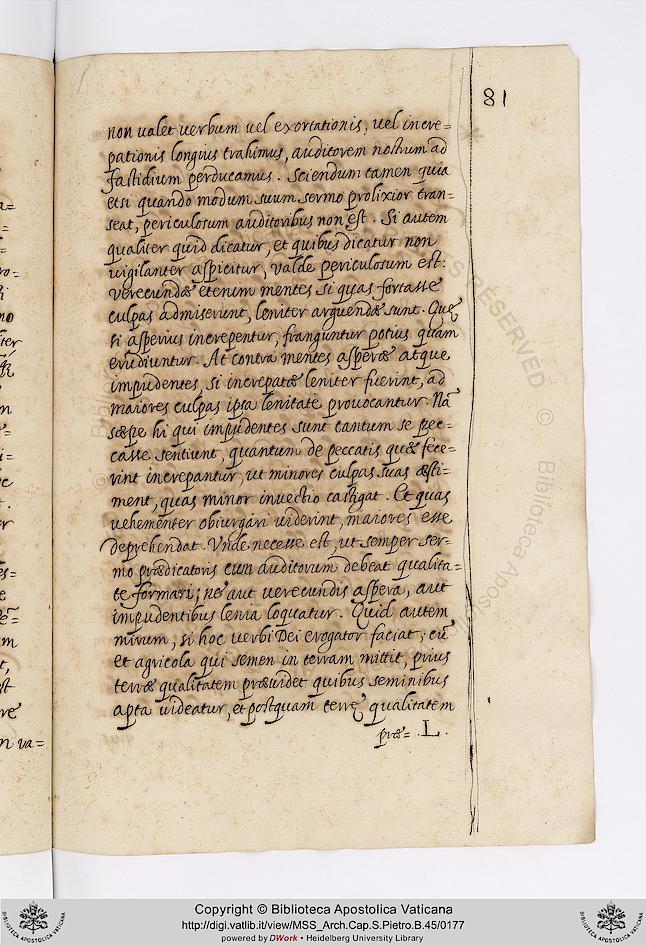 81
non valet verbum vel exortationis, vel incre=
pationis longius trahimus, auditorem nostrum ad
fastidium perducamus. Sciendum tamen quia
etsi quando modum suum sermo prolixior tran=
seat, periculosum auditoribus non est. Si autem
qualiter quid dicatur, et quibus dicatur non
vigilanter aspicitur, valde periculosum est:
verecundæ etenim mentes si quas fortasse
culpas admiserint, leniter arguendæ sunt. Quę
si asperius increpentur, franguntur potius quam
erudiuntur. At contra mentes asperæ atque
impudentes, si increpatæ leniter fuerint, ad
maiores culpas ipsa lenitate provocantur. Nã
sæpe hi qui impudentes sunt tantum se pec=
casse sentiunt, quantum de peccatis quæ fece=
rint increpantur, ut minores culpas suas æsti=
ment, quas minor invectio castigat. Et quas
vehementer obiurgari viderint, maiores esse
deprehendat. Vnde necesse est, ut semper ser=
mo prædicatoris cum auditorum debeat qualita=
te formari; ne aut verecundis aspera, aut
impudentibus lenia loquatur. Quid autem
mirum, si hoc verbi Dei erogator faciat, cũ
et agricola qui semen in terram mittit, prius
terræ qualitatem prævidet quibus seminibus
apta videatur, et postquam terrę qualitatem
præ= .L.
n va=
RESERVED © Biblioteca Aposto
Copyright © Biblioteca Apostolica Vaticana
http://digi.vatlib.it/view/MSS_Arch.Cap.S.Pietro.B.45/0177
powered by DWork • Heidelberg University Library
BIBLIOTECA APOSTOLICA VATICANA
BIBLIOTECA APOSTOLICA VATICANA